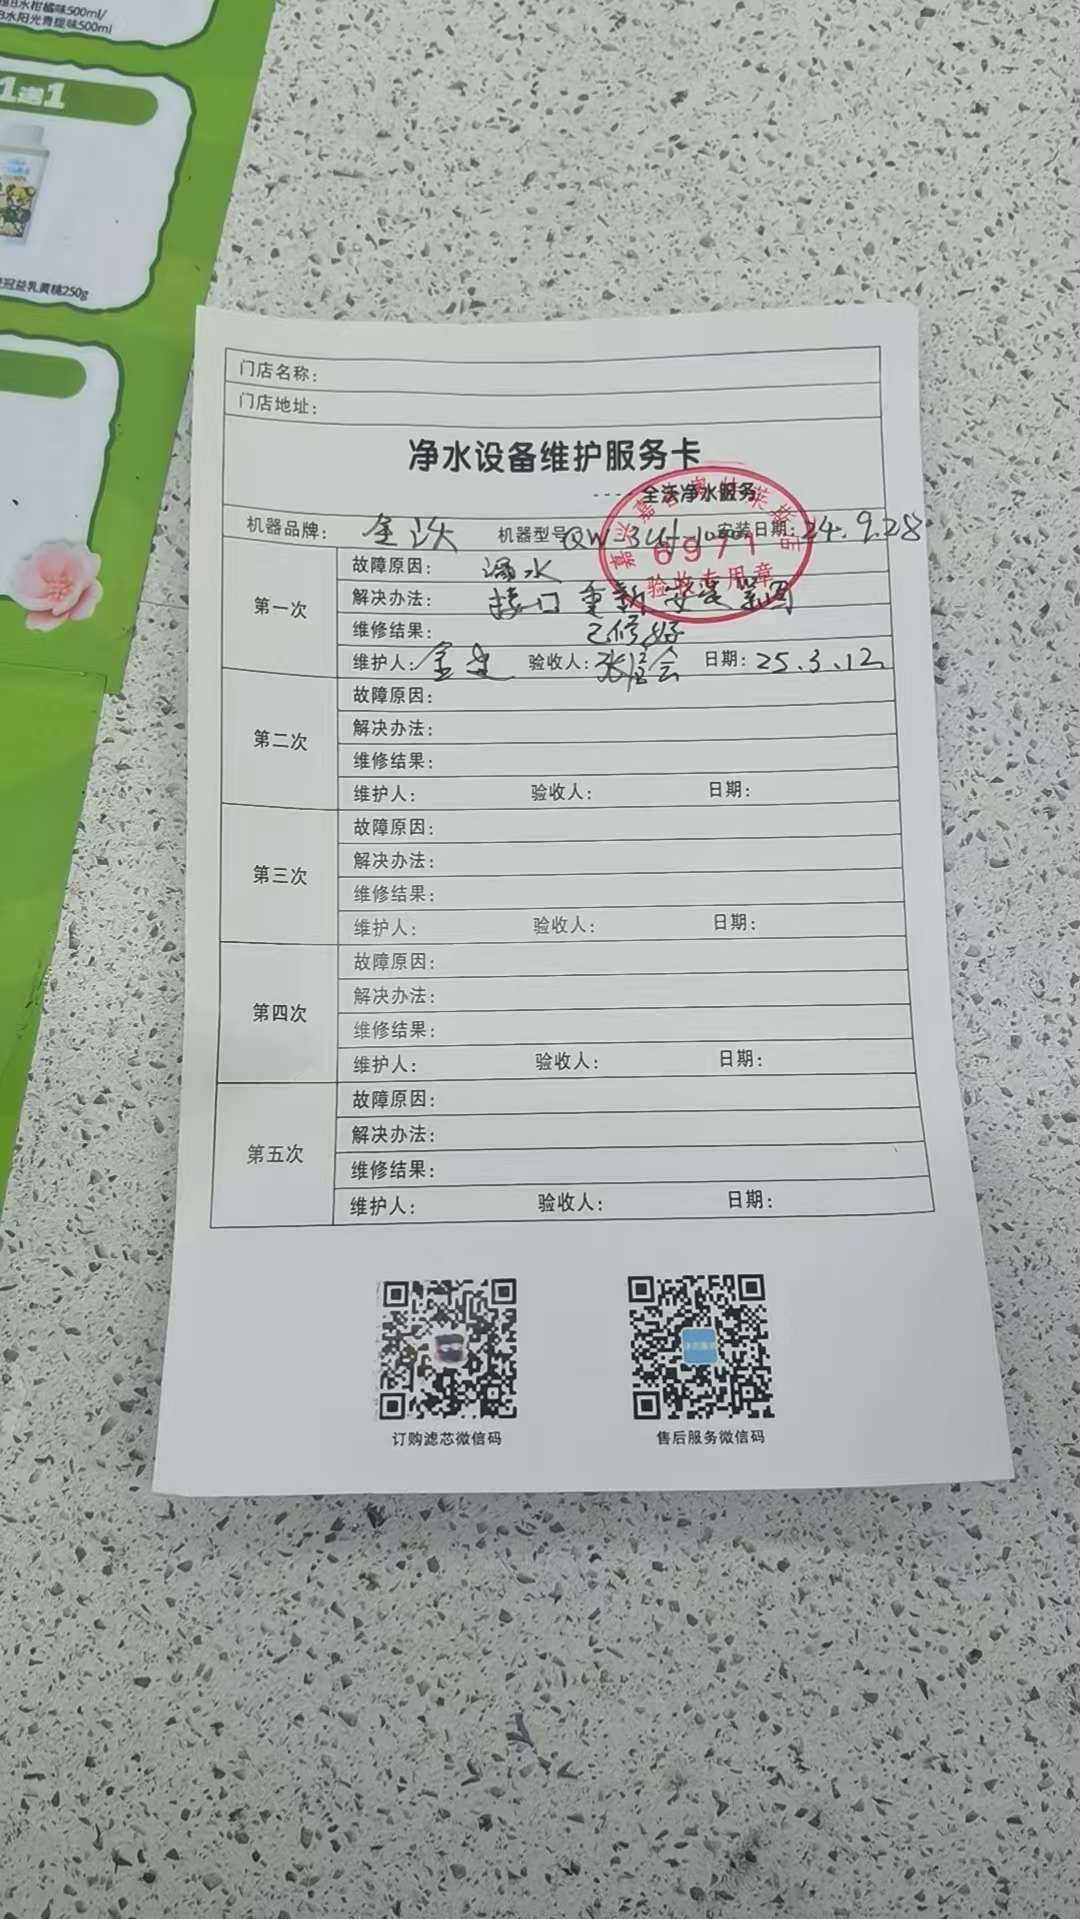 柑橘味500ml/
B水阳光青提味500ml
1送1
冠益乳黄桃250g
门店名称：
门店地址：
净水设备维护服务卡
---- 全沃净水服务
机器品牌： 全沃 机器型号 安装日期： 24.9.28
6971
验收专用章
第一次
故障原因： 漏水
解决办法： 接口重新安装紧固
维修结果： 已修好
维护人： 验收人： 日期： 25.3.12
第二次
故障原因：
解决办法：
维修结果：
维护人： 验收人： 日期：
第三次
故障原因：
解决办法：
维修结果：
维护人： 验收人： 日期：
第四次
故障原因：
解决办法：
维修结果：
维护人： 验收人： 日期：
第五次
故障原因：
解决办法：
维修结果：
维护人： 验收人： 日期：
订购滤芯微信码
售后服务微信码